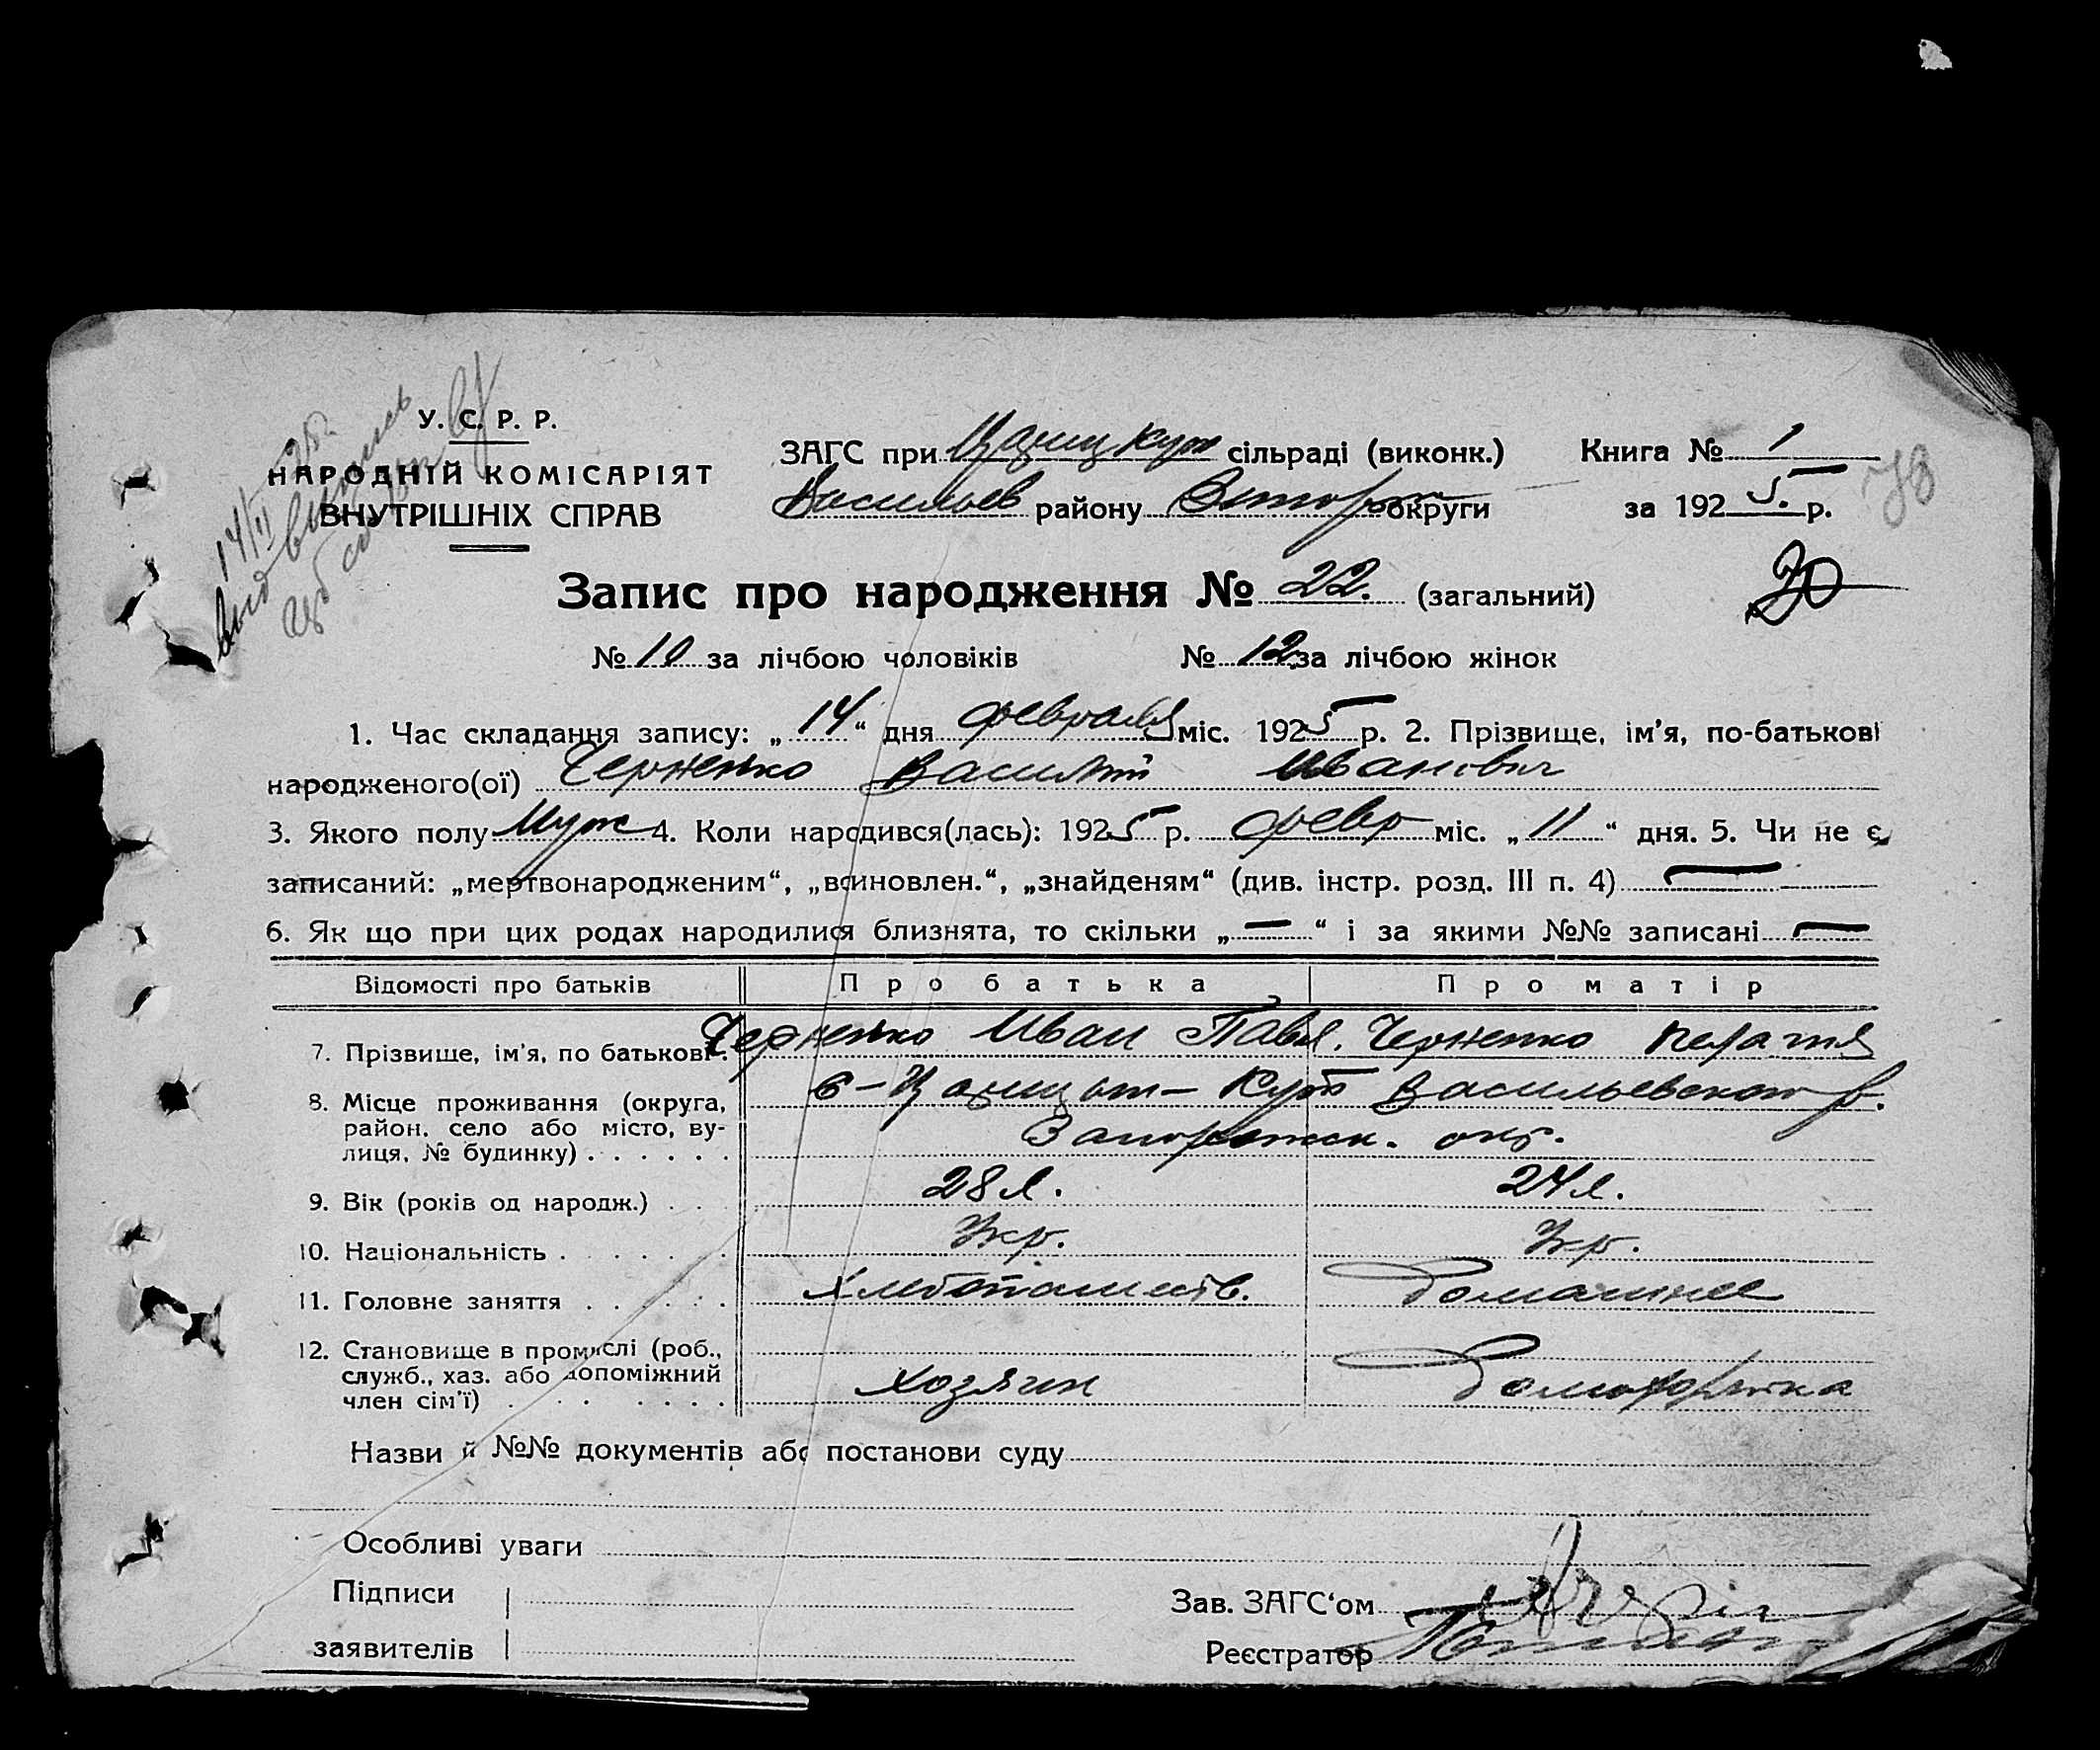 У. С. Р. Р.
НАРОДНІЙ КОМІСАРІЯТ
ВНУТРІШНІХ СПРАВ
14/II 25г.
выд выпись
ЗАГС при Царицкут сільраді (виконк.) Книга № 1
Васильев району округи за 1925 р.
78
20
Запис про народження № 22. (загальний)
№ 10 за лічбою чоловіків № 12 за лічбою жінок
1. Час складання запису: „14“ дня февраля міс. 1925 р. 2. Прізвище, ім’я, по-батькові
народженого(ої) Черненко Василий Иванович
3. Якого полу Муж 4. Коли народився(лась): 1925 р. февр міс. „11“ дня. 5. Чи не є
записаний: „мертвонародженим“, „всиновлен.“, „знайденям“ (див. інстр. розд. III п. 4) —
6. Як що при цих родах народилися близнята, то скільки „—“ і за якими №№ записані —
Відомості про батьків Про батька Про матір
7. Прізвище, ім’я, по батькові . Черненко Иван Павл. Черненко Пелагия
8. Місце проживання (округа, район, село або місто, вулиця, № будинку) . . . . . . с-Царицын-Кут Васильевского р.
Запорожск. окр.
9. Вік (років од народж.) . . . 28 л. 24 л.
10. Національність . . . . . . Укр. Укр.
11. Головне заняття . . . . . . Хлебопашеств. Домашнее
12. Становище в промислі (роб., служб., хаз. або допоміжний член сім’ї) . . . . . . . Хозяин
Назви й №№ документів або постанови суду
Особливі уваги
Підписи Зав. ЗАГС‘ом
заявителів Реєстратор